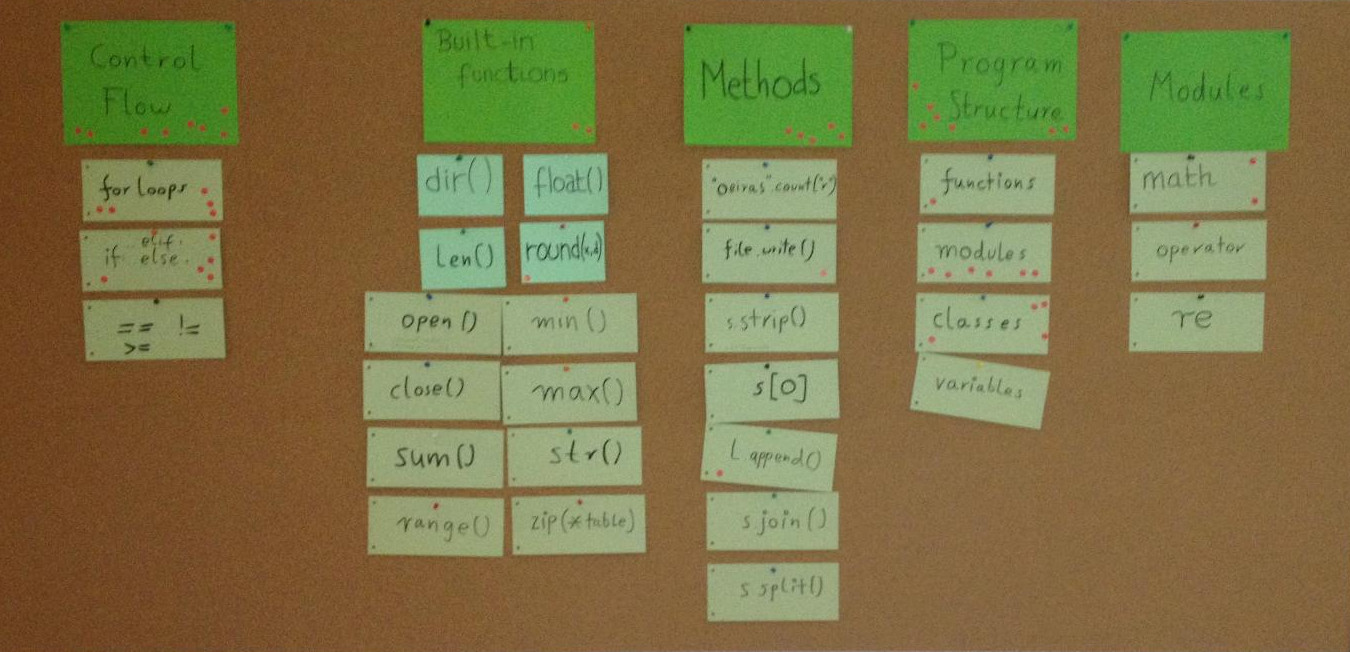 Control
Flow
for loops
elif.
if else.
== !=
>=
Built-in
functions
dir()
float()
len()
round(x,d)
open()
min()
close()
max()
sum()
str()
range()
zip(*table)
Methods
"oeiras".count("r")
file.write()
s.strip()
s[0]
L append()
s.join()
s split()
Program
Structure
functions
modules
classes
variables
Modules
math
operator
re